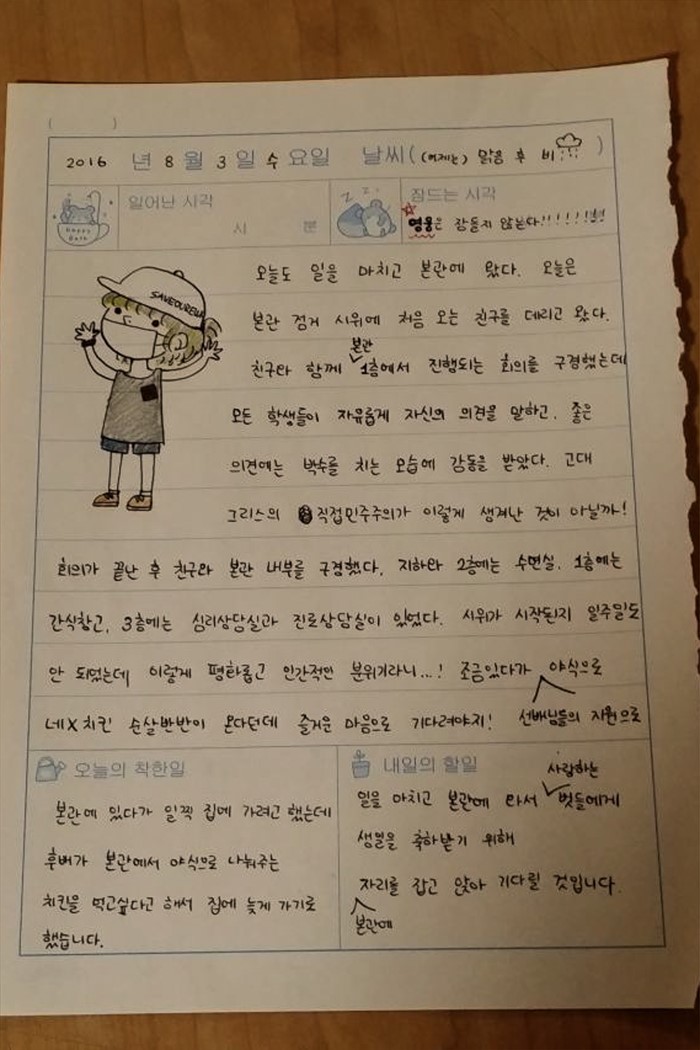 ( )
2016 년 8 월 3 일 수 요일 날씨( (어제는) 맑음 후 비 )
일어난 시각
시 분
Happy Bath
z z z
잠드는 시각
☆영웅은 잠들지 않는다!!!!!!!!!
SAVEOUREWH
오늘도 일을 마치고 본관에 왔다. 오늘은
본관 점거 시위에 처음 오는 친구를 데리고 왔다.
친구와 함께 본관 1층에서 진행되는 회의를 구경했는데
모든 학생들이 자유롭게 자신의 의견을 말하고, 좋은
의견에는 박수를 치는 모습에 감동을 받았다. 고대
그리스의 직접민주주의가 이렇게 생겨난 것이 아닐까!
회의가 끝난 후 친구와 본관 내부를 구경했다. 지하와 2층에는 수면실, 1층에는
간식창고, 3층에는 심리상담실과 진로상담실이 있었다. 시위가 시작된지 일주일도
안 되었는데 이렇게 평화롭고 인간적인 분위기라니...! 조금있다가 야식으로
네X치킨 순살반반이 온다던데 즐거운 마음으로 기다려야지! 선배님들의 지원으로
오늘의 착한일
본관에 있다가 일찍 집에 가려고 했는데
후배가 본관에서 야식으로 나눠주는
치킨을 먹고싶다고 해서 집에 늦게 가기로
했습니다.
내일의 할일
일을 마치고 본관에 와서 사랑하는 벗들에게
생일을 축하받기 위해
자리를 잡고 앉아 기다릴 것입니다.
본관에